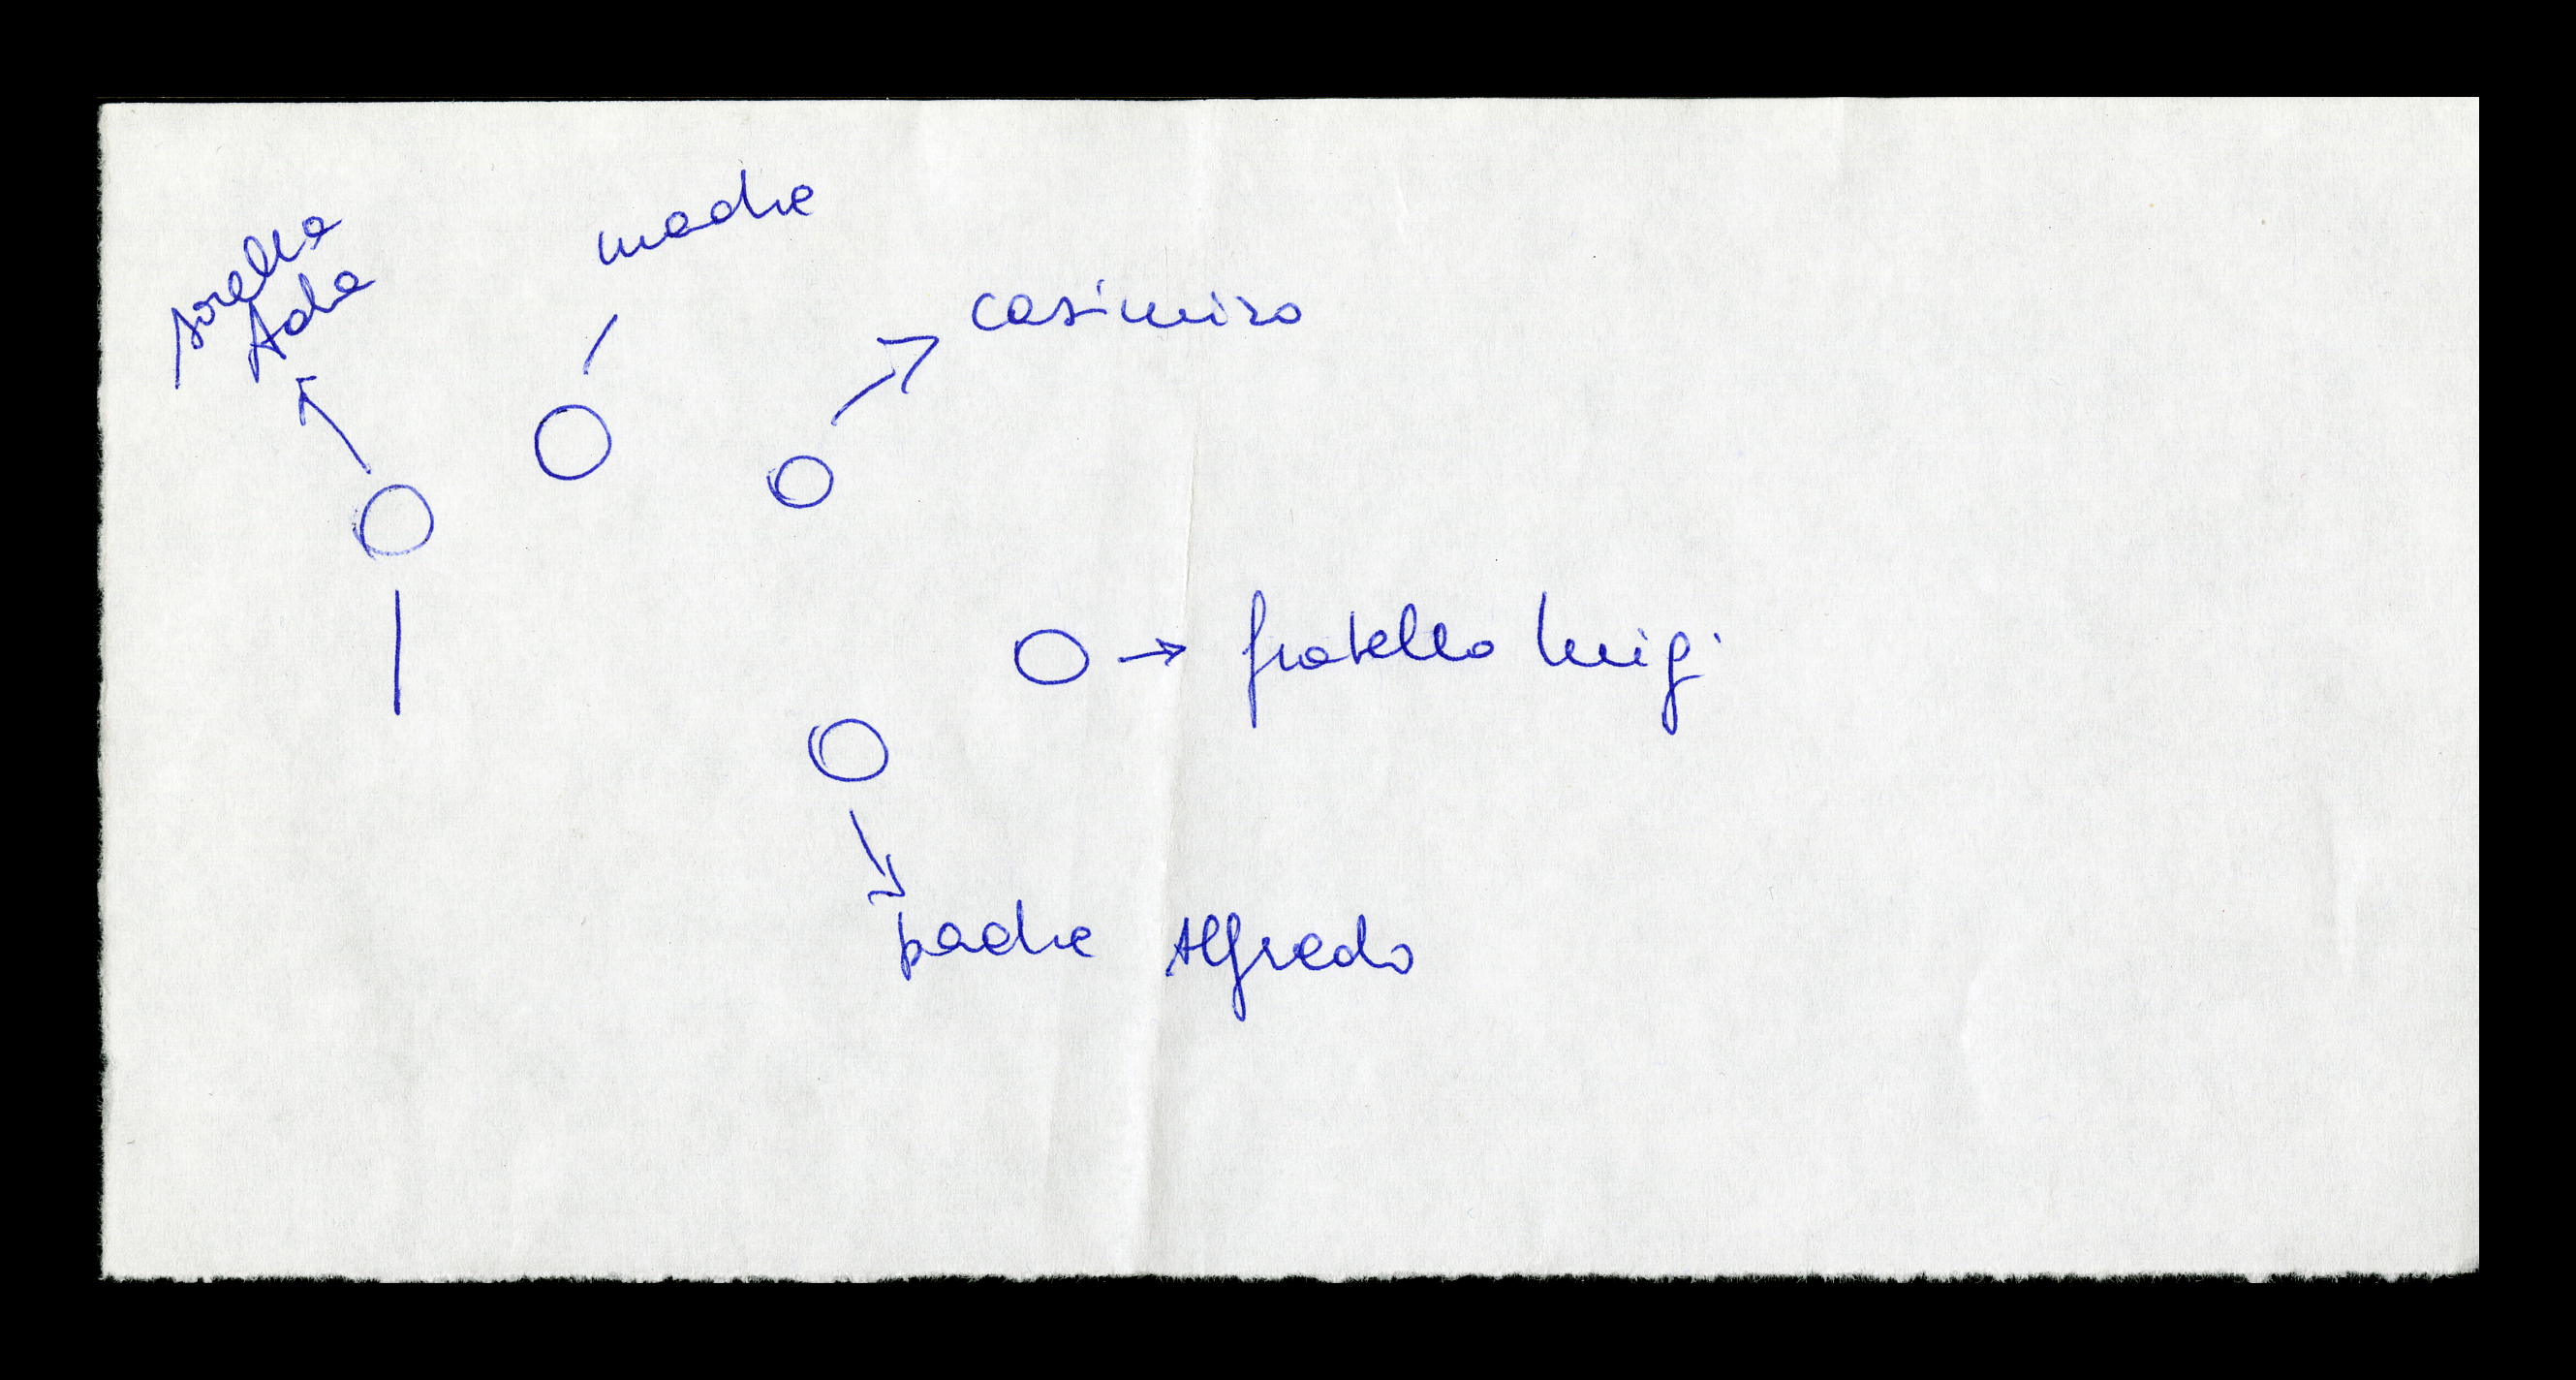 madre
sorella
Ada
casimiro
fratello luigi
padre Alfredo